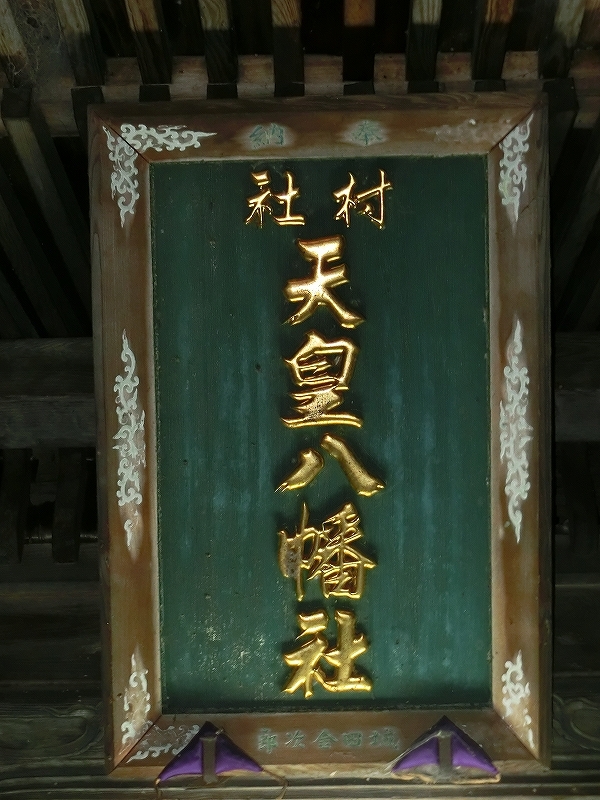 奉納
村社
天皇八幡社